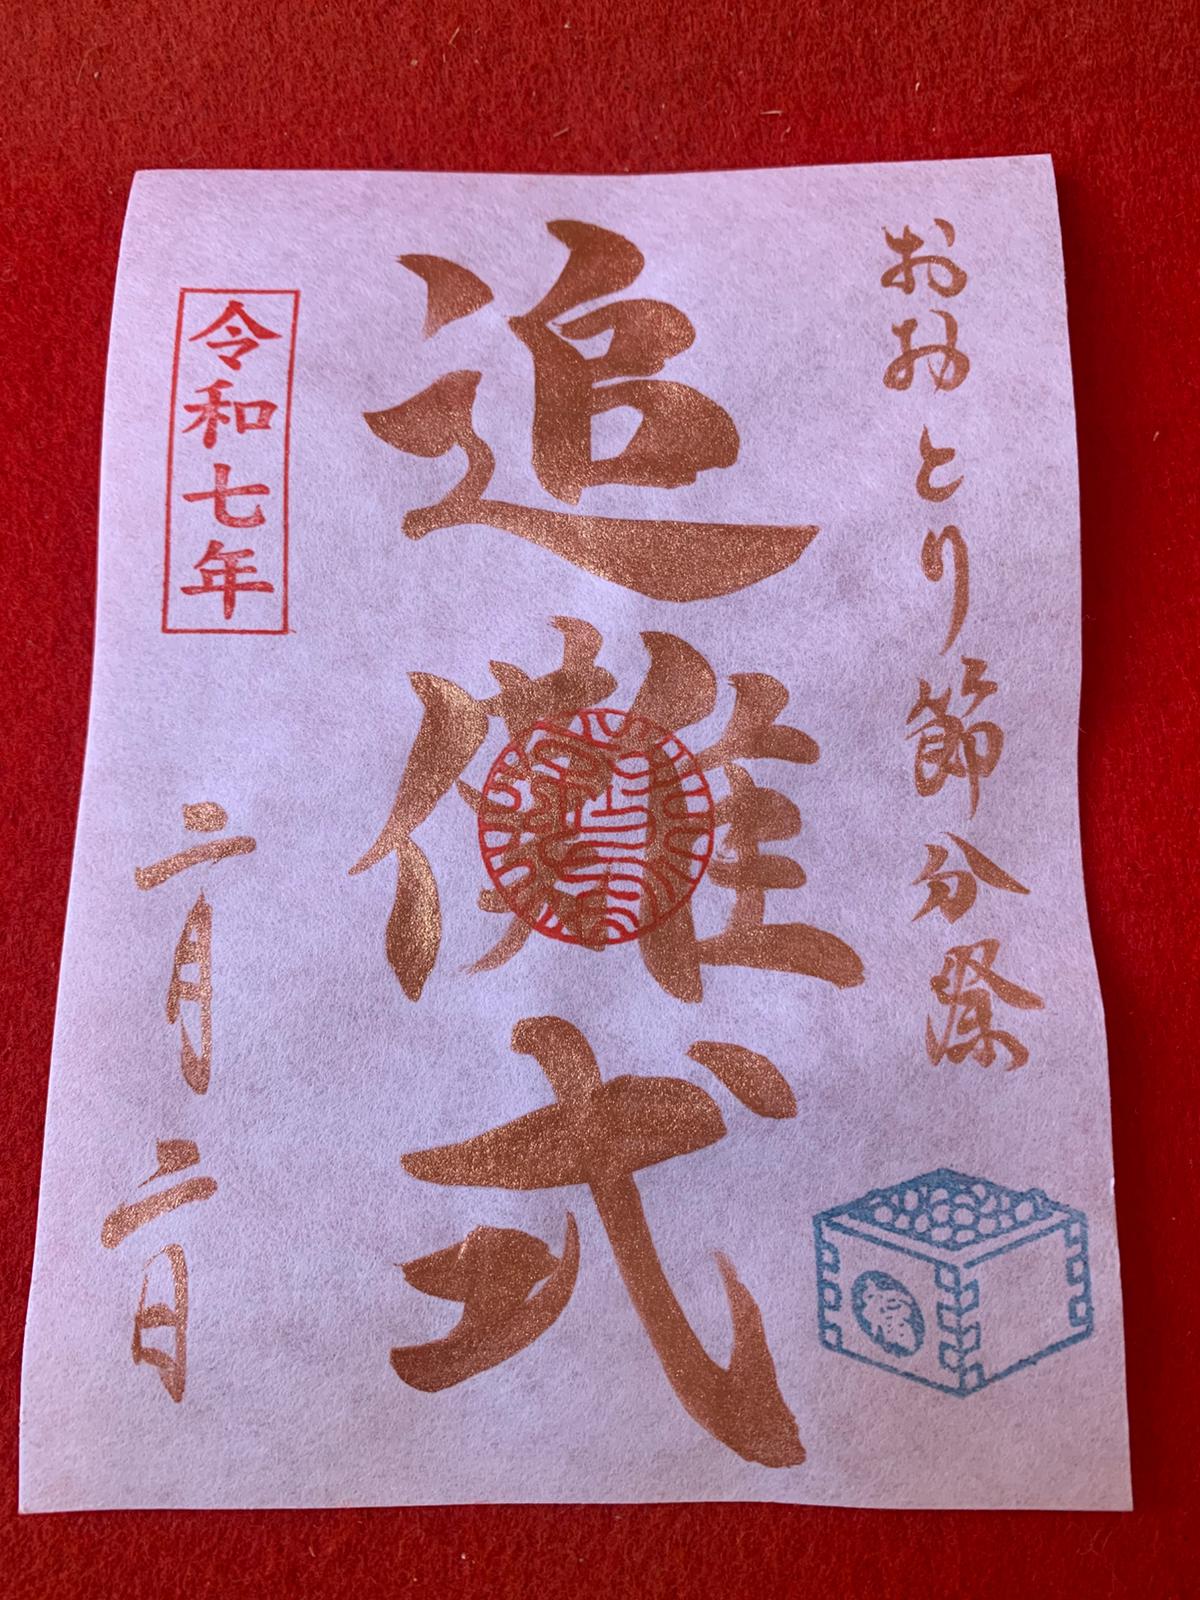 おおとり節分祭
追儺式
令和七年
二月二日
福